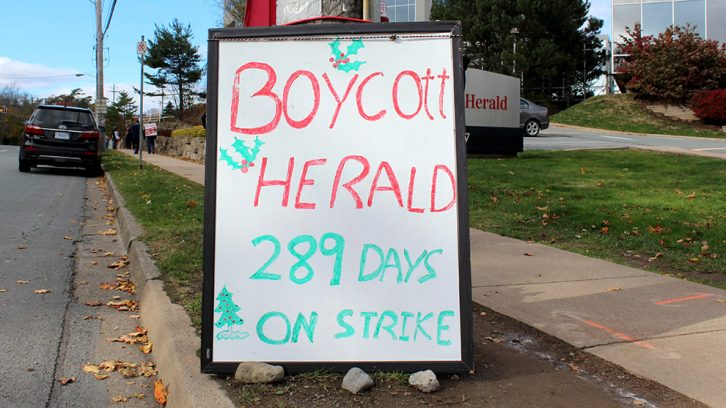 Boycott
Herald
HERALD
289 DAYS
ON STRIKE